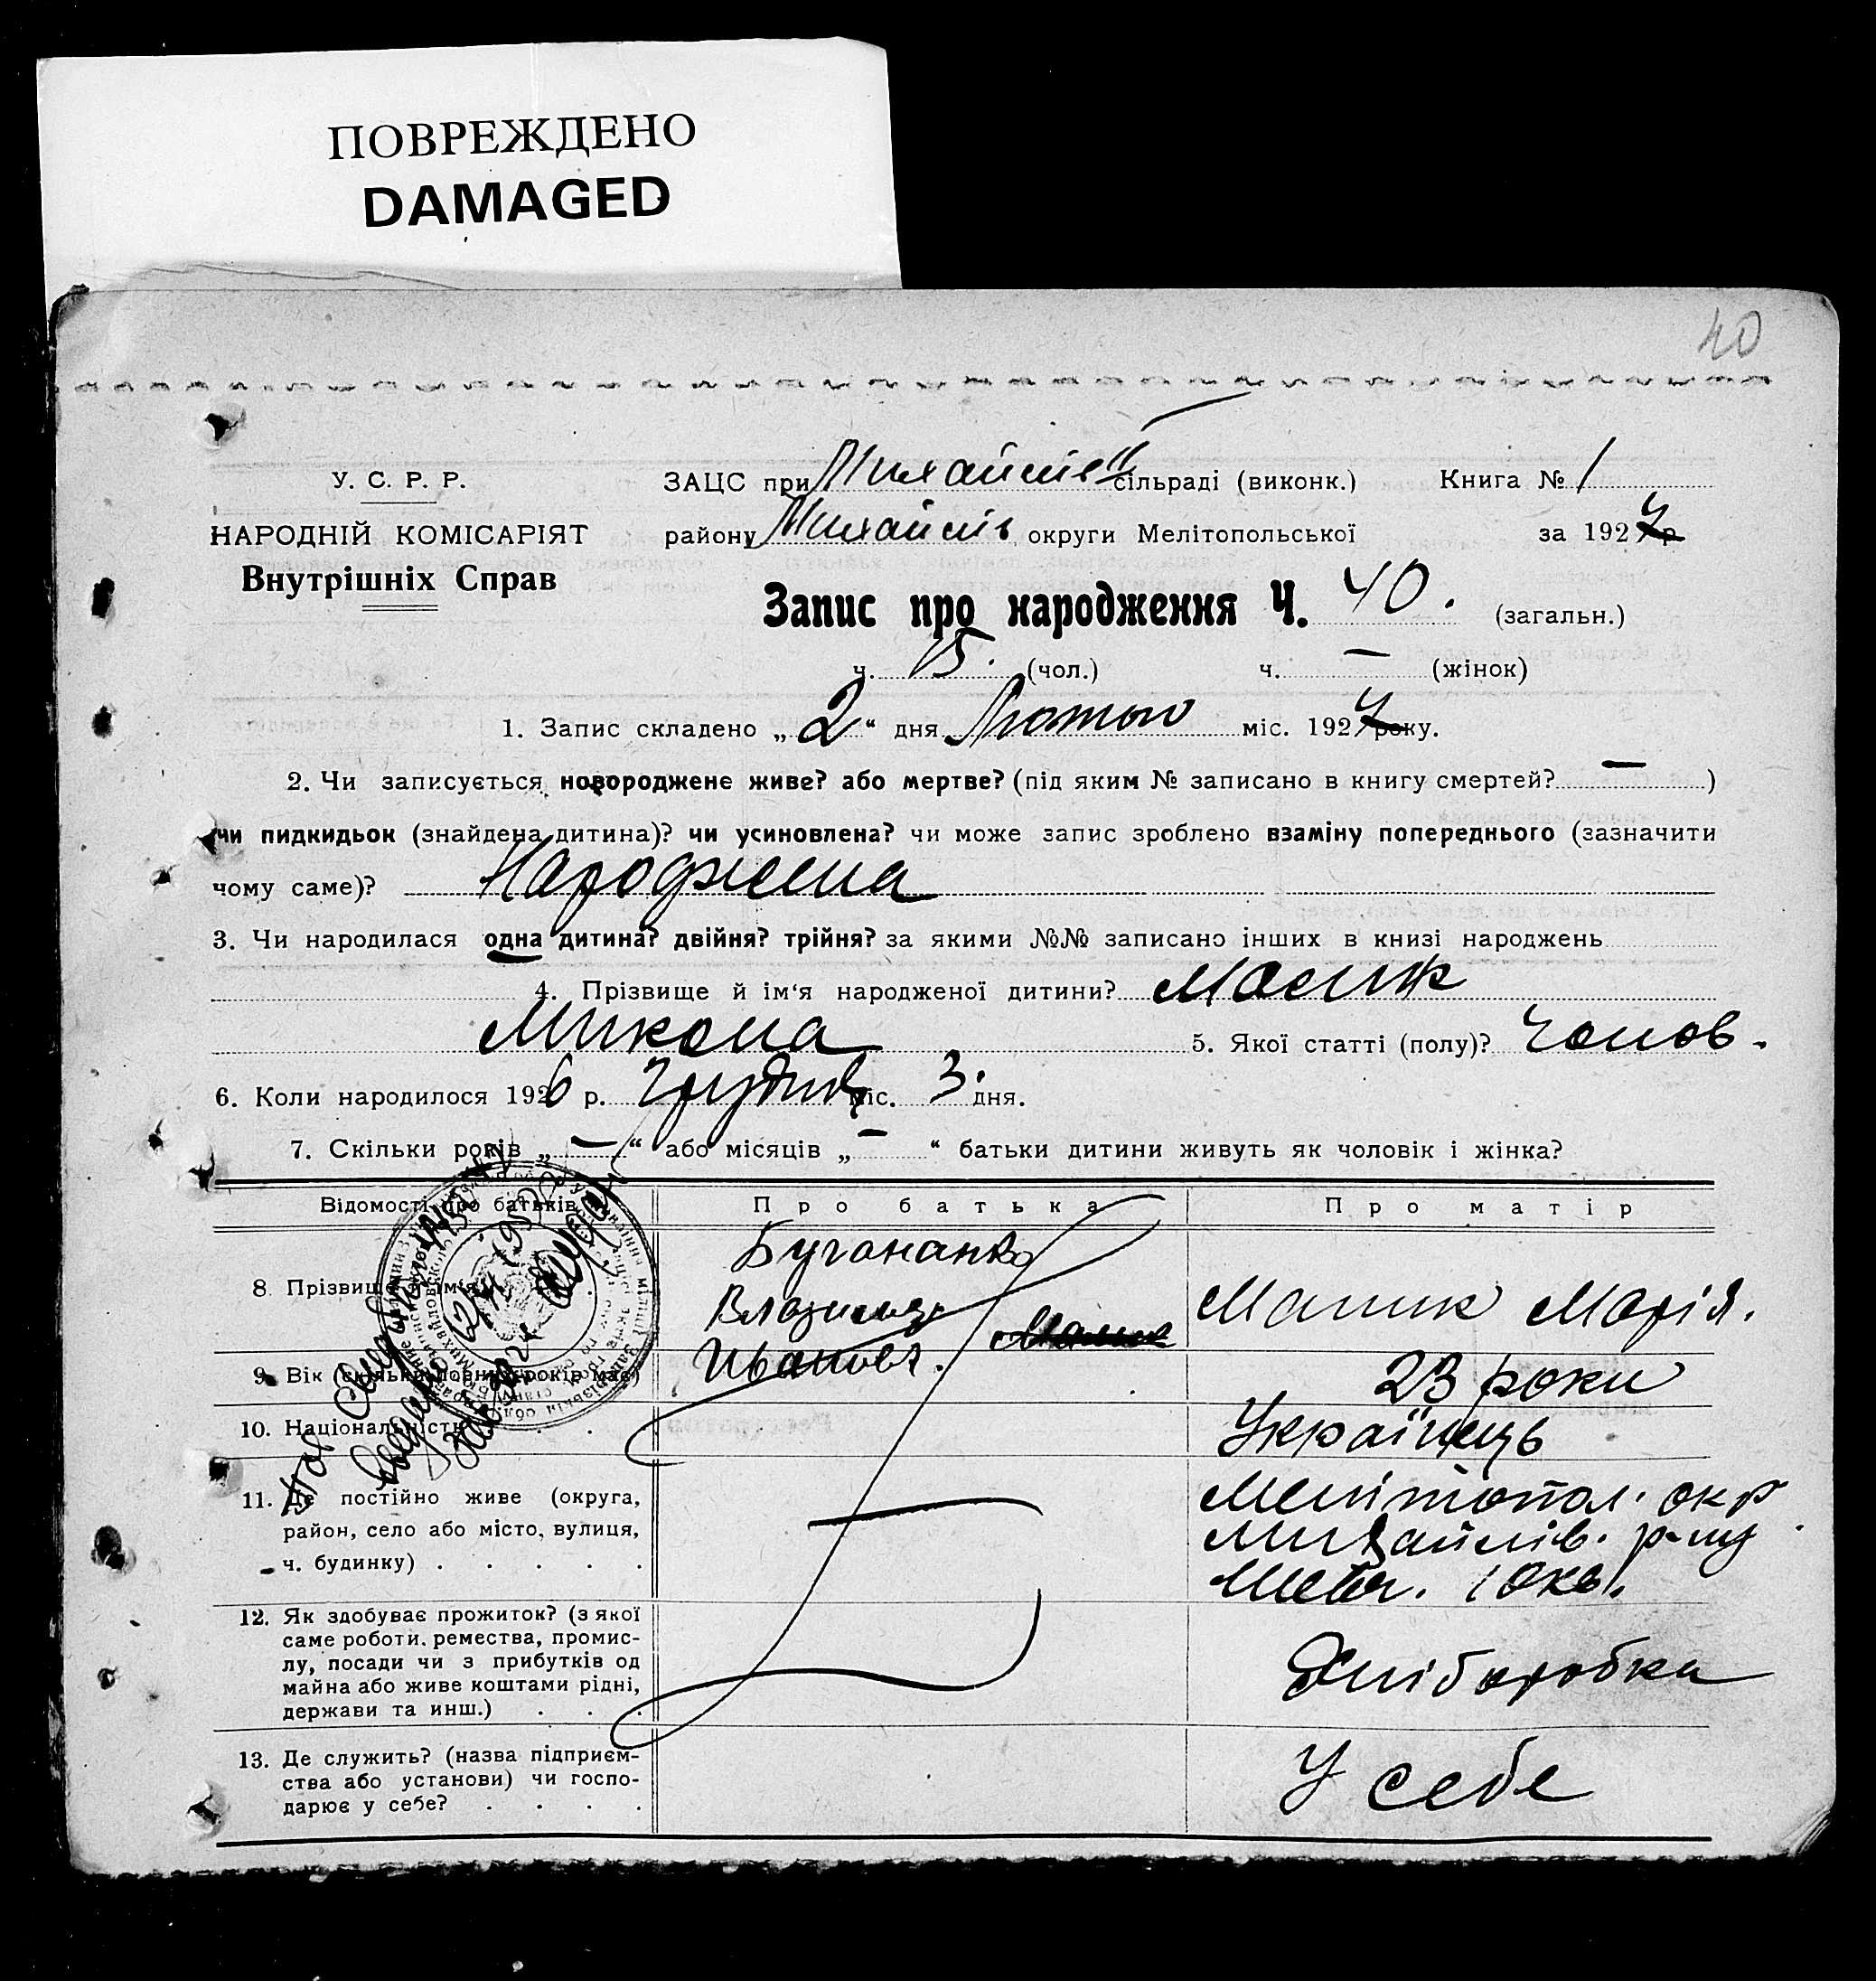 ПОВРЕЖДЕНО
DAMAGED
40
У. С. Р. Р.
НАРОДНІЙ КОМІСАРІЯТ
Внутрішніх Справ
ЗАЦС при Михайлів сільраді (виконк.) Книга № 1
району Михайлів округи Мелітопольської за 1927 р
Запис про народження Ч. 40. (загальн.)
ч. 15. (чол.) ч. — (жінок)
1. Запис складено „ 2 “ дня Лютого міс. 1927 року.
2. Чи записується новороджене живе? або мертве? (під яким № записано в книгу смертей? — )
чи пидкидьок (знайдена дитина)? чи усиновлена? чи може запис зроблено взаміну попереднього (зазначити
чому саме)? Народжена
3. Чи народилася одна дитина? двійня? трійня? за якими №№ записано інших в книзі народжень
4. Прізвище й ім‘я народженої дитини?
Микола 5. Якої статті (полу)? Чолов.
6. Коли народилося 1926 р. Грудня міс. 3 дня.
7. Скільки років „ — “ або місяців „ — “ батьки дитини живуть як чоловік і жінка?
Відомості про батьків
Про батька
Про матір
8 Прізвище й ім‘я
Владимир
Иванов.
Малик Марія.
9. Вік (скільки повних років має)
23 роки
10. Національність
Українець
11. Де постійно живе (округа,
район, село або місто, вулиця,
ч. будинку) . . . . .
Мелітопол. окр
Михайлів. р-ну
12. Як здобуває прожиток? (з якої
саме роботи, ремества, промис-
лу, посади чи з прибутків од
майна або живе коштами рідні,
держави та инш.) . . .
Хліборобка
13. Де служить? (назва підприєм-
ства або установи) чи госпо-
дарює у себе? . . . .
У себе